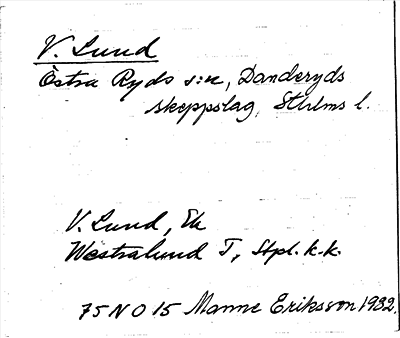 V. Lund
Östra Ryds s:n, Danderyds
skeppslag, Sthlms l.
V. Lund, Ek
Westralund T, Stpl. k.k.
75 NO 15 Manne Eriksson 1932.